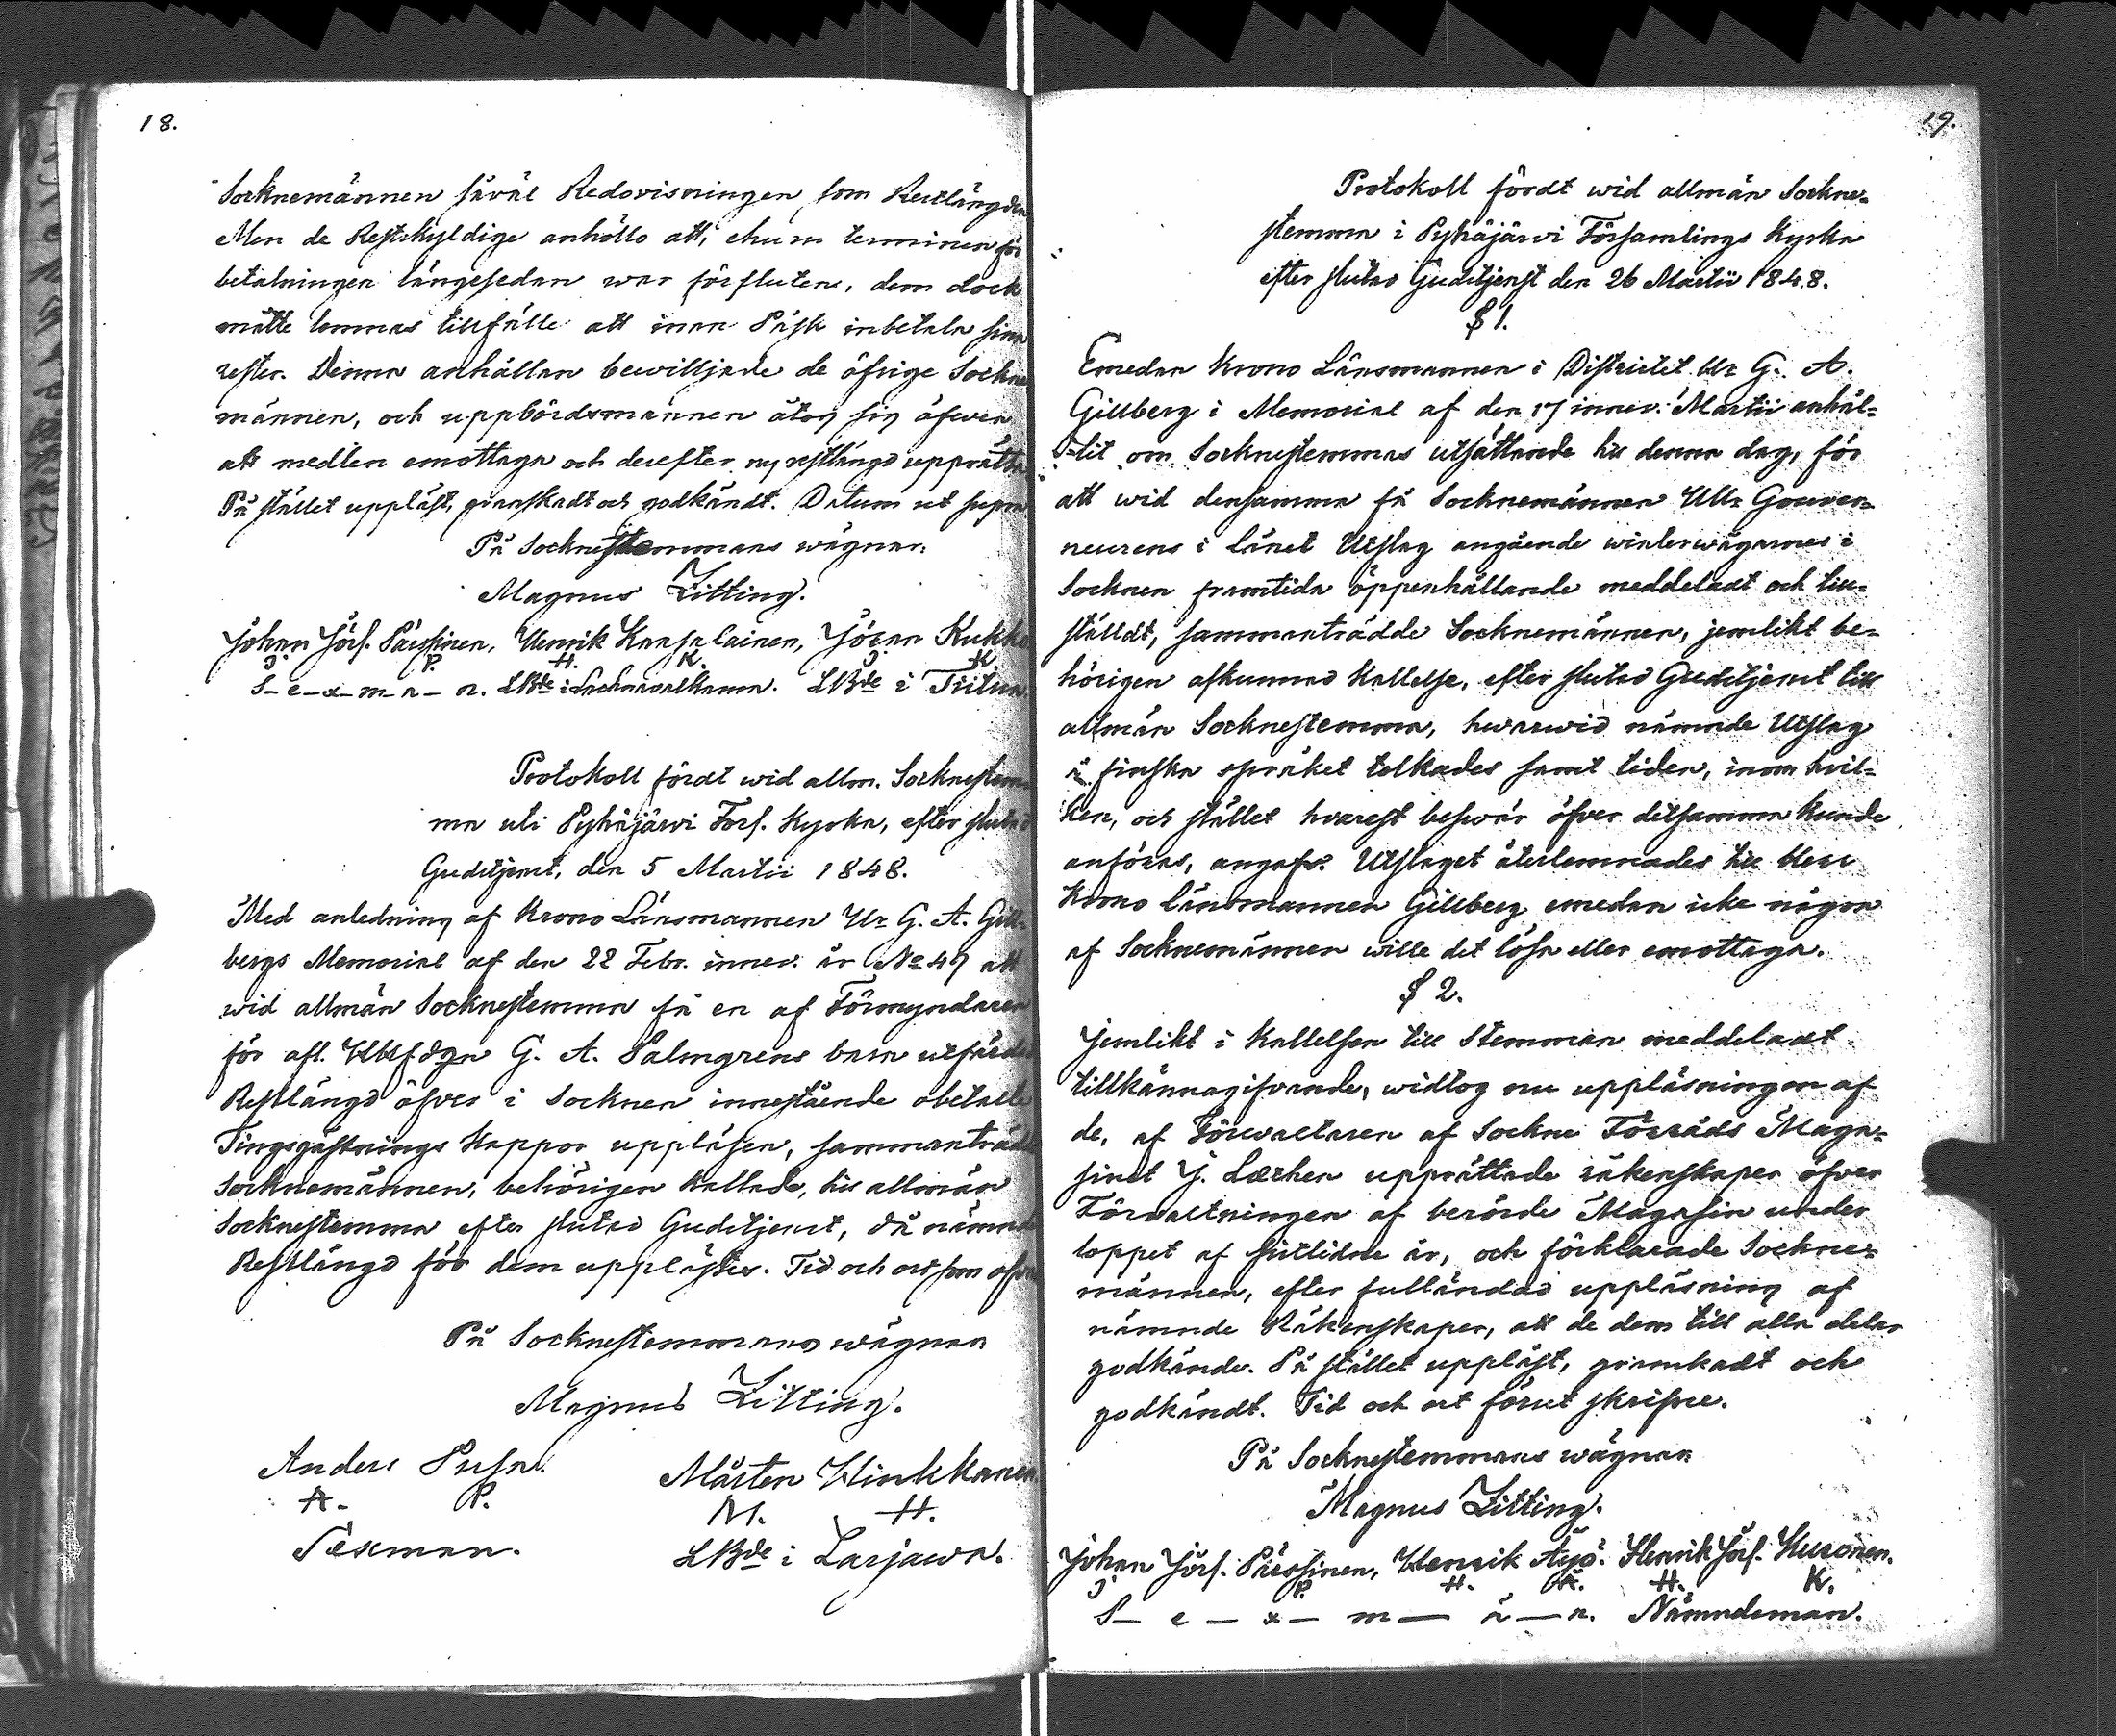 18.
Socknemännen såväl Redovisningen som Restlängden
Men de Restskyldige anhöllo att, ehuru terminen för
betalningen längesedan war förfluten, dem dock
måtte lemnas tillfälle att innan Påsk inbetala sina
rester. Denna anhållan bewilljade de öfrige Sockne
männen, och uppbördsmannen åtog sig äfwen
att medlen emottaga och derefter ny restlängd upprätta
På stället uppläst, granskadt och godkändt. Datum ut supra
På Socknestemmans wägnar:
Magnus Zitting.
Johan Jörs. Pässinen, Henrik Kansalainen, Jöran Kukko
J. P. H. K. J. K.
S-e-x-m-ä-n. LBde i LBde i
Protokoll fördt wid allm. Socknestem
ma uti Pyhäjärwi Förs. Kyrka, efter slutad
Gudstjenst, den 5 Martii 1848.
Med anledning af Krono Länsmannen Hr G. A. Gill-
bergs Memorial af den 22 Febr. innev. år No 49 att
wid allmän Socknestemma få en af Förmyndaren
för afl. G. A. Palmgrens barn utfärdad
Restlängd öfver i Socknen innestående obetalte
Tingsgästnings Kappor uppläsen, sammanträdde
Socknemännen, behörigen kallade, till allmän
Socknestemma efter slutad Gudstjenst, då nämnde
Restlängd för dem upplästes. Tid och ort som ofvan
På Socknestemmans wägnar
Magnus Zitting.
Anders Pusa. Mårten Hinkkanen
A. P. M. H.
Sexman. LBde i Larjawa.
19.
Protokoll fördt wid allmän Sockne-
stemma i Pyhäjärwi Församlings Kyrka
efter slutad Gudstjenst den 26 Martii 1848.
§ 1.
Emedan Krono Länsmannen i Districtet Hr G. A.
Gillberg i Memorial af den 17 innev. Martii anhål-
lit om Socknestemmas utsättande till denna dag, för
att wid densamma få Socknemännen Hr Gouver-
neurens i länet Utslag angående winterwägarnes i
Socknen framtida öppenhållande meddeladt och till-
ställdt, sammanträdde Socknemännen, jemlikt be-
hörigen afkunnad Kallelse, efter slutad Gudstjenst till
allmän Socknestemma, hwarwid nämnde Utslag
å finska språket tolkades samt tiden, inom hvil-
ken, och stället hvarest beswär öfver detsamma kunde
anföras, angafs. Utslaget återlemnades till Herr
Krono länsmannen Gillberg emedan icke någon
af Socknemännen wille det lösa eller emottaga.
§ 2.
Jemlikt i Kallelsen till Stemman meddeladt
tillkännagifvande, widtog nu uppläsningen af
de, af Förvaltaren af Sockne Förråds Maga-
sinet J. Lærken upprättade räkenskaper öfver
Förvaltningen af berörde Magasin under
loppet af sistlidne år, och förklarade Sockne-
männen, efter fulländad uppläsning af
nämnde Räkenskaper, att de dem till alla delar
godkände. På stället uppläst, granskadt och
godkändt. Tid och ort förut skrifne.
På Socknestemmans wägnar
Magnus Zitting.
Johan Jörs. Pässinen, Henrik Äyö. Henrik Jörs. Kuronen.
J. P. H. Ä. H. K.
S- e - x - m - ä - n. Nämndeman.